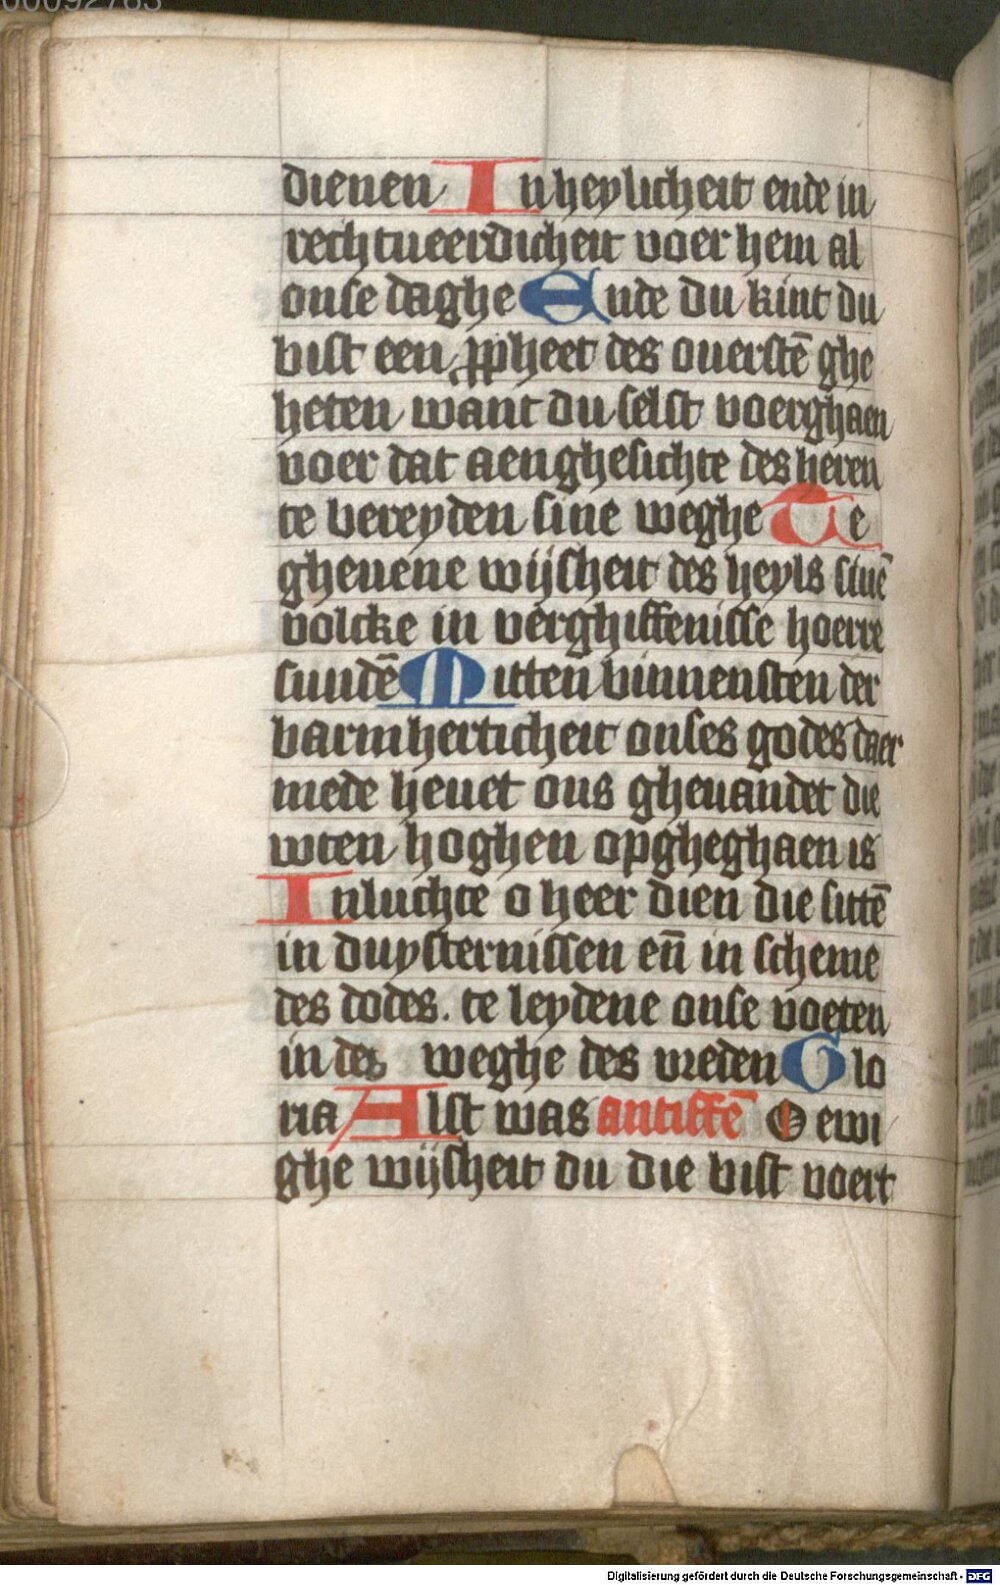 00092763
dienen In heylicheit ende in
rechtueerdicheit voer hem al
onse daghe Ende du kint du
bist een ꝓpheet des ouerstē ghe
heten want du selst voerghaen
voer dat aenghesichte des heren
te bereyden sine weghe Te
gheuene wijsheit des heyls sinē
volcke in verghiffenisse hoerre
sundē Mitten binnensten der
barmherticheit onses godes daer
mede heuet ons gheuandet die
wten hoghen opgheghaen is
Inluchte o heer dien die sittē
in duysternissen eñ in scheme
des dodes. te leydene onse voeten
in des weghe des vreden Glo
ria Alst was antiffē O ewi
ghe wijsheit du die bist voert
Digitalisierung gefördert durch die Deutsche Forschungsgemeinschaft - DFG